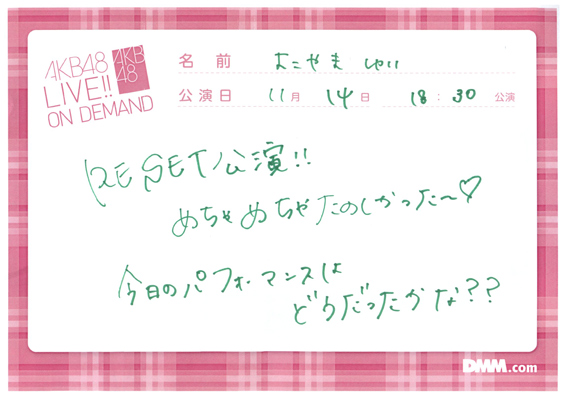 AKB48
LIVE!!
ON DEMAND
AKB
48
名前 よこやま ゆい
公演日 11月 14日 18:30 公演
RESET公演!!
めちゃめちゃたのしかった〜♡
今日のパフォーマンスは
どうだったかな??
DMM.com